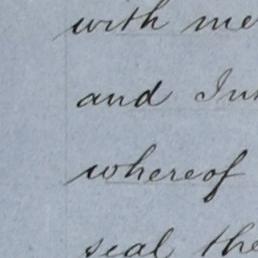 with me
and
whereof
seal the